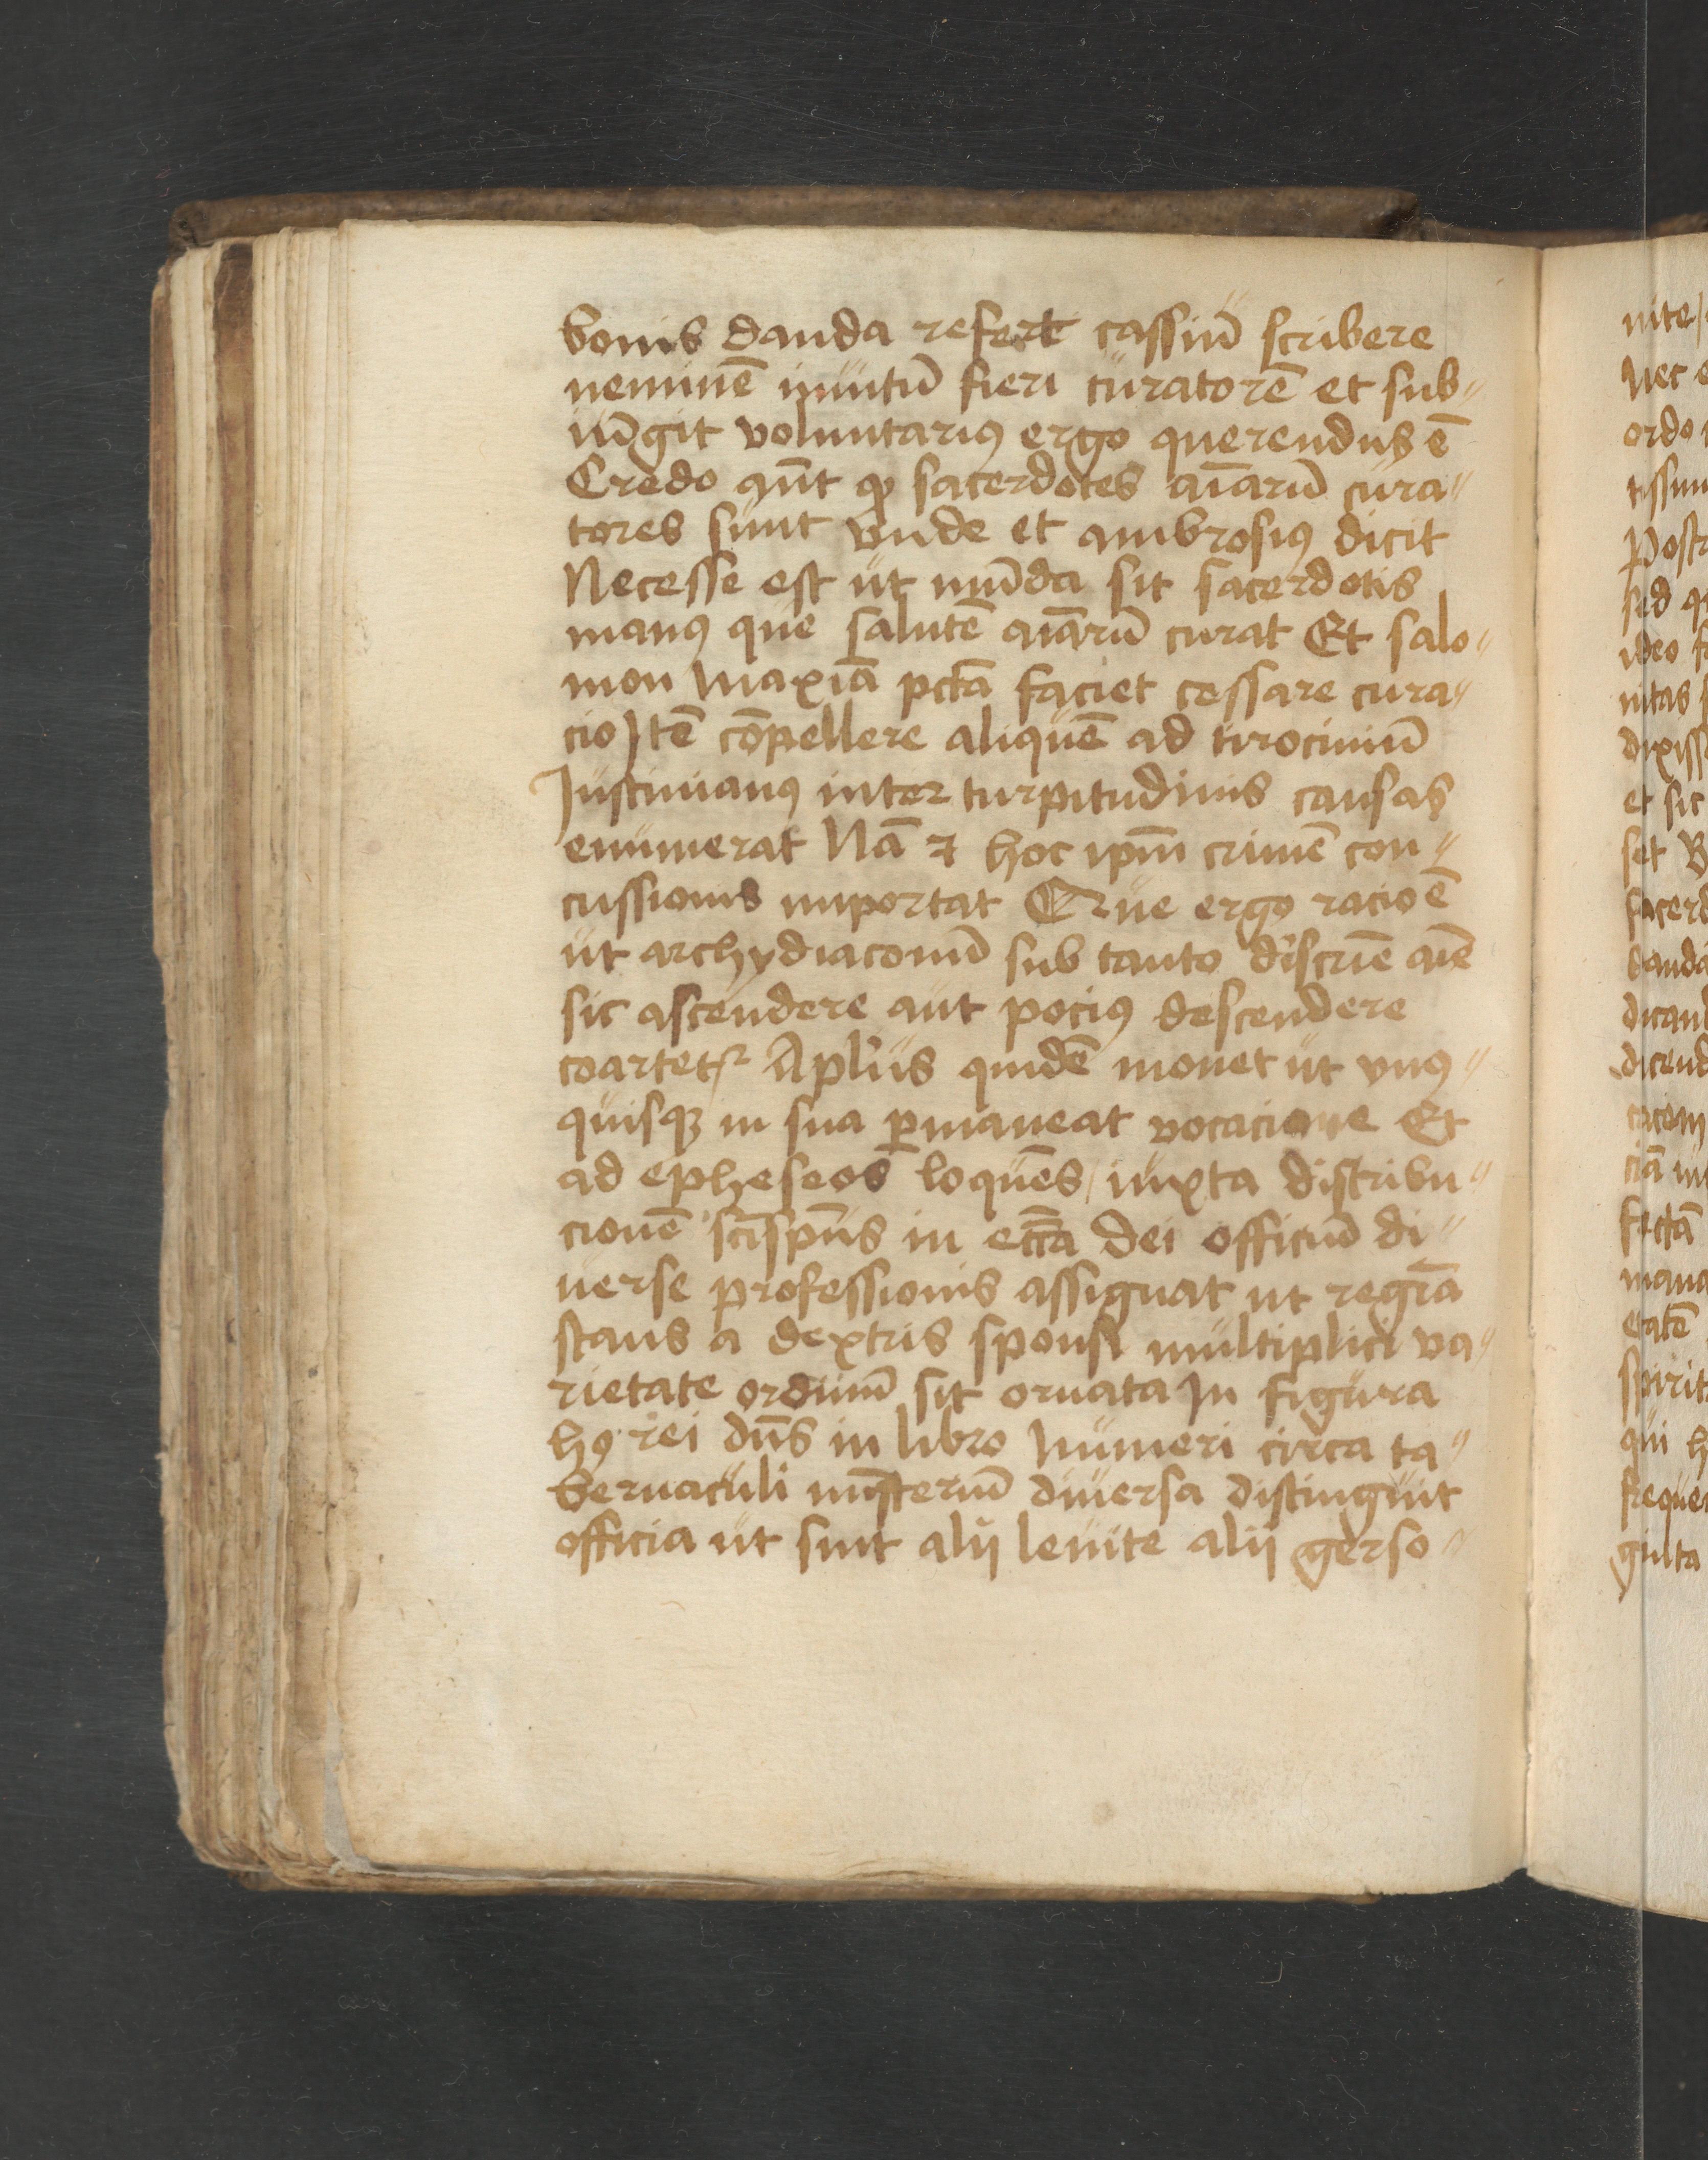 bonis danda refert cassiū scribere
neminē inuitū fieri curatorē et sub〃
iūgit voluntariꝰ ergo querendus ē
Credo aūt ꝙ sacerdotes aīarū cura〃
tores sunt vnde et ambrosiꝰ dicit
Necesse est ut mūda sit sacerdotis
manꝰ que salutē aīarū curat Et salo〃
mon Maxīa pctā faciet cessare cura〃
cio Itē cōpellere aliquē ad tirociniū
Justinianꝰ inter turpitudinis causas
enumerat Nā ⁊ hoc ipm̄ crimē con〃
cussionis importat Que ergo racio ē
ut archydiaconū sub tanto discrīē aīe
sic ascendere aut pociꝰ descendere
coartetur Aplus quidē monet ut vnꝰ〃
quisqꝫ in sua ꝑmaneat vocacione Et
ad epheseos loquēs / iuxta distribu〃
cionē sc̄i spūs in ecc̄a dei officiū di〃
uerse professionis assignat ut regīa
stans a dextris sponsi multiplici va〃
rietate ordinū sit ornata In figura
hꝰ rei dn̄s in libro Numeri circa ta〃
bernaculi mīsteriū diuersa distinguit
officia ut sint alij leuite alij gerso〃
nite /
Nec
ordo
tissim
Postr
sed
ideo
nitas
dixiss
et sic
set
sacerd
danda
dicend
ciā
etatē
spirit
qui h
freque
gulta